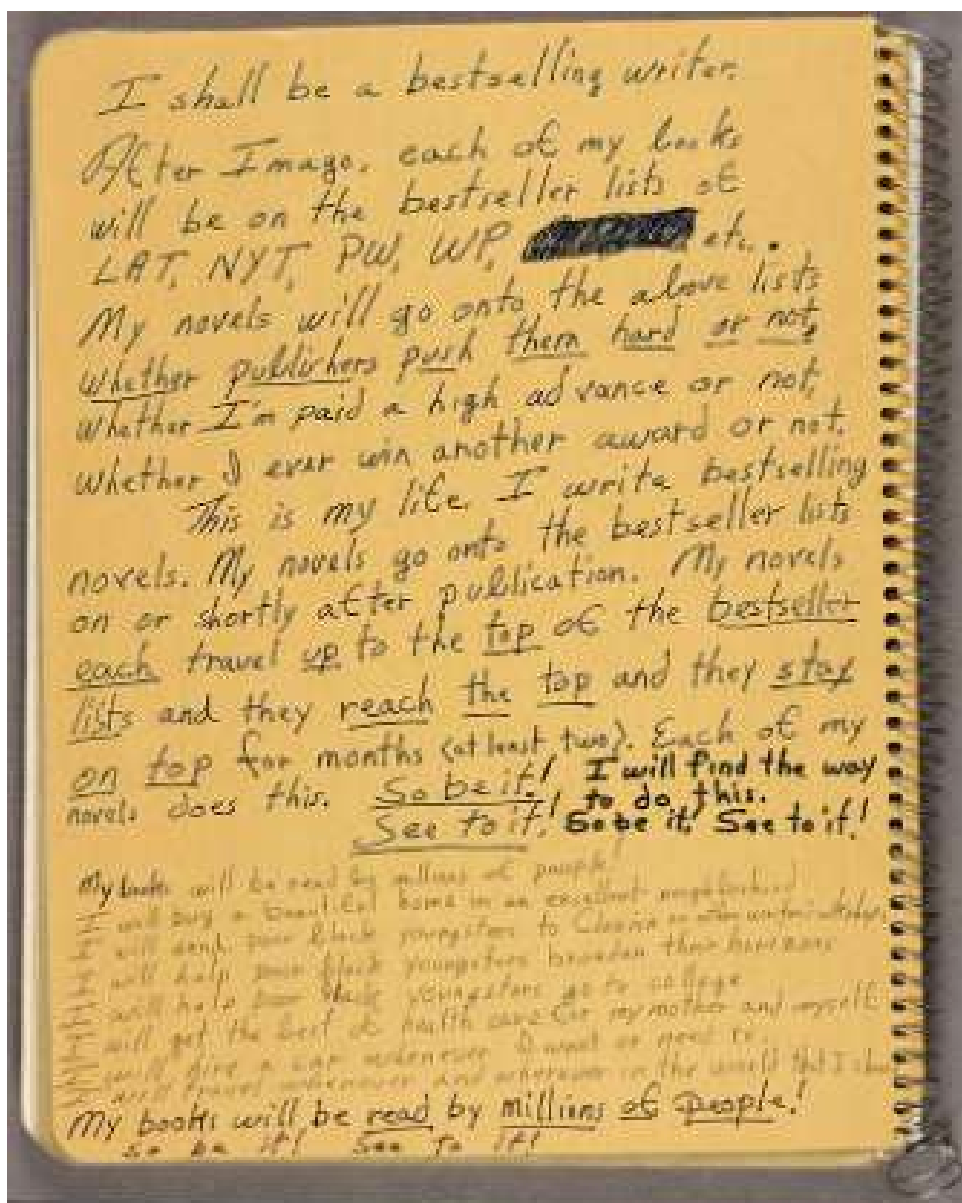 I shall be a bestselling writer.
After Imago, each of my books
will be on the bestseller lists of
LAT, NYT, PW, WP, etc.
My novels will go onto the above lists
whether publishers push them hard or not,
whether I'm paid a high advance or not,
whether I ever win another award or not.
This is my life. I write bestselling
novels. My novels go onto the bestseller lists
on or shortly after publication. My novels
each travel up to the top of the bestseller
lists and they reach the top and they stay
on top for months (at least two). Each of my
novels does this. So be it! I will find the way
See to it! to do this.
So be it! See to it!
My books will be read by millions of people!
I will buy a beautiful home in an excellent neighborhood
I will send poor black youngsters to Clarion or other writer's workshops
I will help poor black youngsters broaden their horizons
I will help poor black youngsters go to college
I will get the best of health care for my mother and myself
I will hire a car whenever I want or need to.
I will travel whenever and wherever in the world that I choose
My books will be read by millions of people!
So be it! See to it!